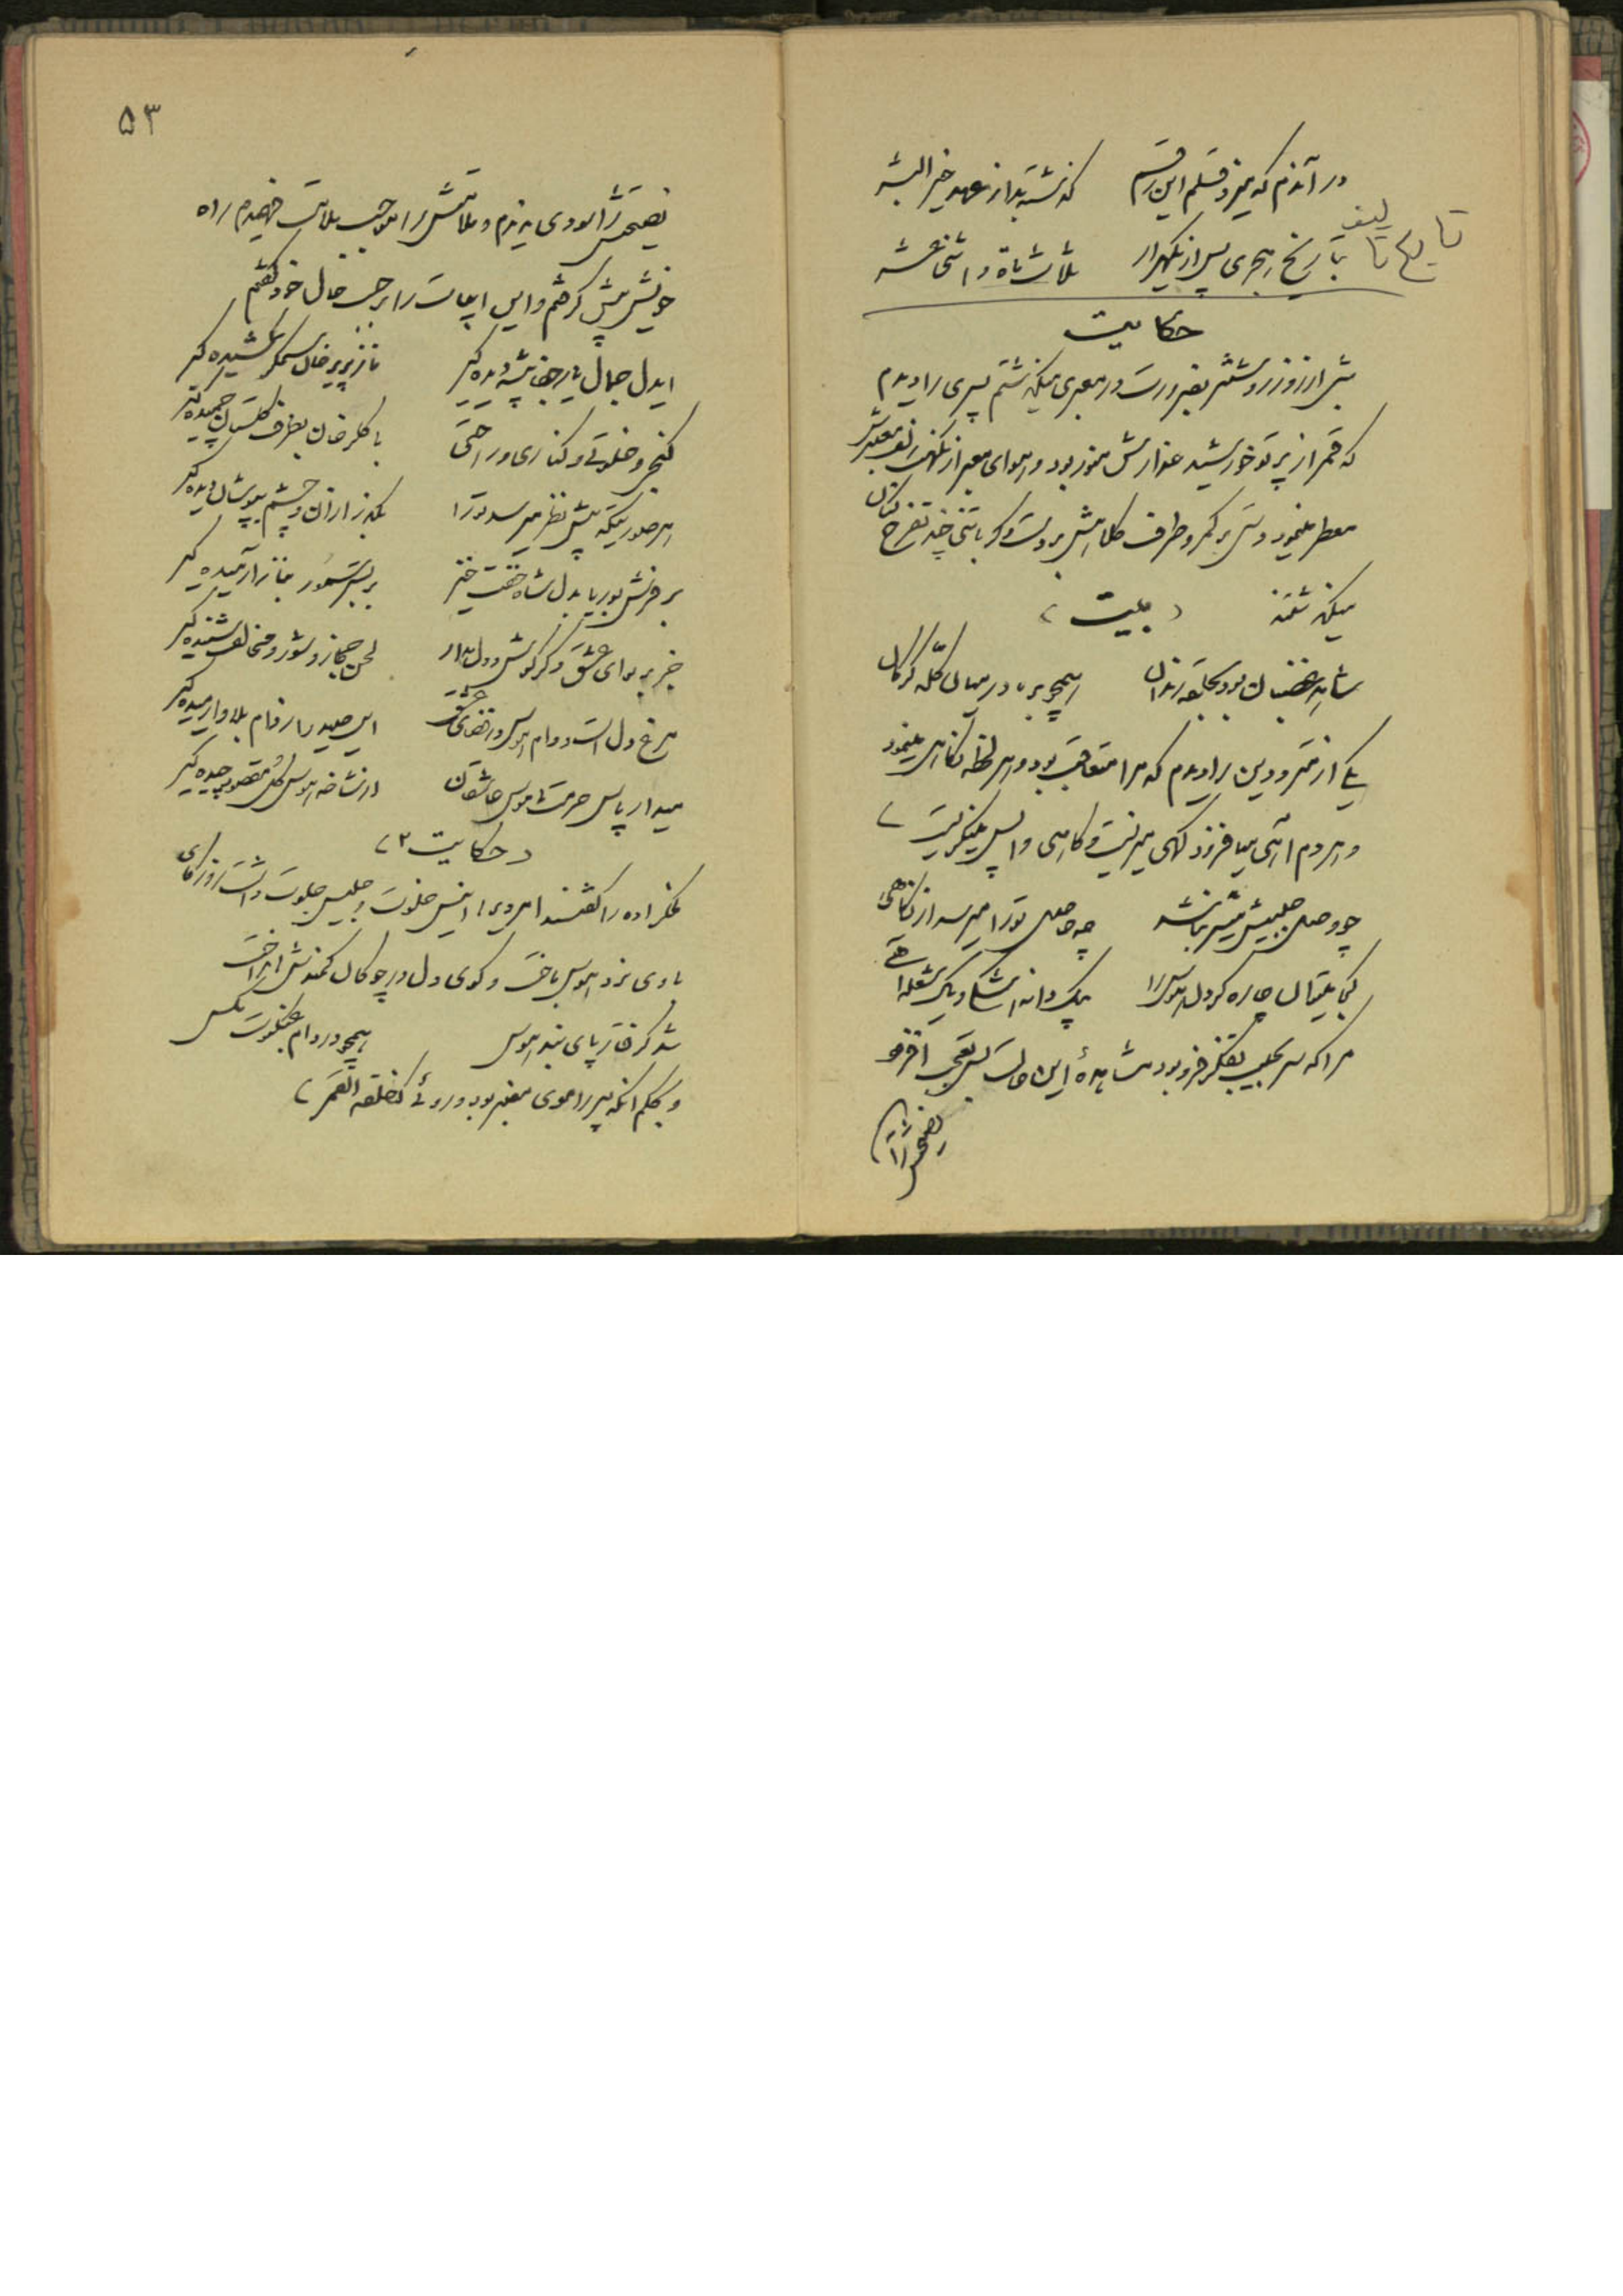 در آندم که میزد قلم این رقم کذشته بد از عهد خیر البشر
تاریخ تالیف
بتاریخ هجری پس از یکهزار ثلاث ماة و اثنی عشر
حکایت
شبی از روز روشنتر بضرورت در معبری میکذشتم پسری را دیدم
که قمر از پرتو خورشید عذارش منور بود و هوای معبر از نکهت زلف معنبرش
معطر مینمود دستی بر کمر و طرف کلاهش بر دست و با تنی چند تفرج کنان
میکذشتند (بیت)
شاهد بود بحلقه رندان همچو بره در میان کله کرکان
یکی از مترددین را دیدم که مرا متعاقب بود و هر لحظه نکاهی مینمود
و هر دم آهی میافزود کهی میزیست و کاهی واپس مینکریست
چو وصل حبیبش میسر نباشد چه حاصل تو را میرسد از نکاهی
کی میتوان چاره کرد دل هوس را بیک دانه اشک و یک شعله آهی
مرا که سر بجیب تفکر فرو بود مشاهدهٔ این حالت بس تعجب افزود
نصیحتش را
۵۳
نصیحتش را سودی ندیدم و ملامتش را موجب ملامت فهمیدم راه
خویش پیش کرفتم و این ابیات را بر حسب حال خود کفتم
ایدل جمال یار جفا پیشه دیده کیر ناز پریرخان ستمکر کشیده کیر
کنجی و خلوتی و کناری و راحتی با کلرخان بطرف کلستان چمیده کیر
هر صورتیکه پیش نظر میرسد تو را بکذر از آن و چشم بپوشان و دیده کیر
بر فرش بوریا بدل شاد خفت خیز بر بستر سمور بناز آرمیده کیر
خیز بر نوای عشق و کر کوش دل بدار لحن حجاز و شور و مخالف شنیده کیر
مرغ دل است و دام هوس در قضای عشق این صید را ز دام بلا وارمیده کیر
میدار پاس حرمت ناموس عاشقان از شاخه هوس کل مقصود چیده کیر
(حکایت ۲)
ملکزاده را کفتند امردی را انیس خلوت و جلیس جلوت داشت روزکاری
با وی نرد هوس باخت و کوی دل در چوکان کمندش انداخت
شد کرفتار پای بند هوس همچو در دام عنکبوت مکس
و بحکم آنکه پسر را موی معنبر بود و روئی کفلقة القمر